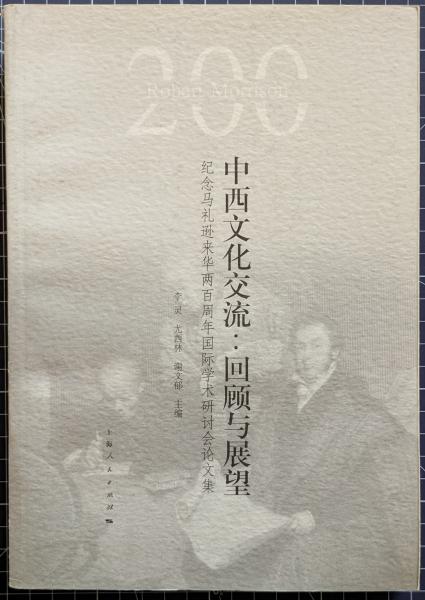 200
Robert Morrison
中西文化交流:回顾与展望
纪念马礼逊来华两百周年国际学术研讨会论文集
李灵 尤西林 谢文郁 主编
上海人民出版社